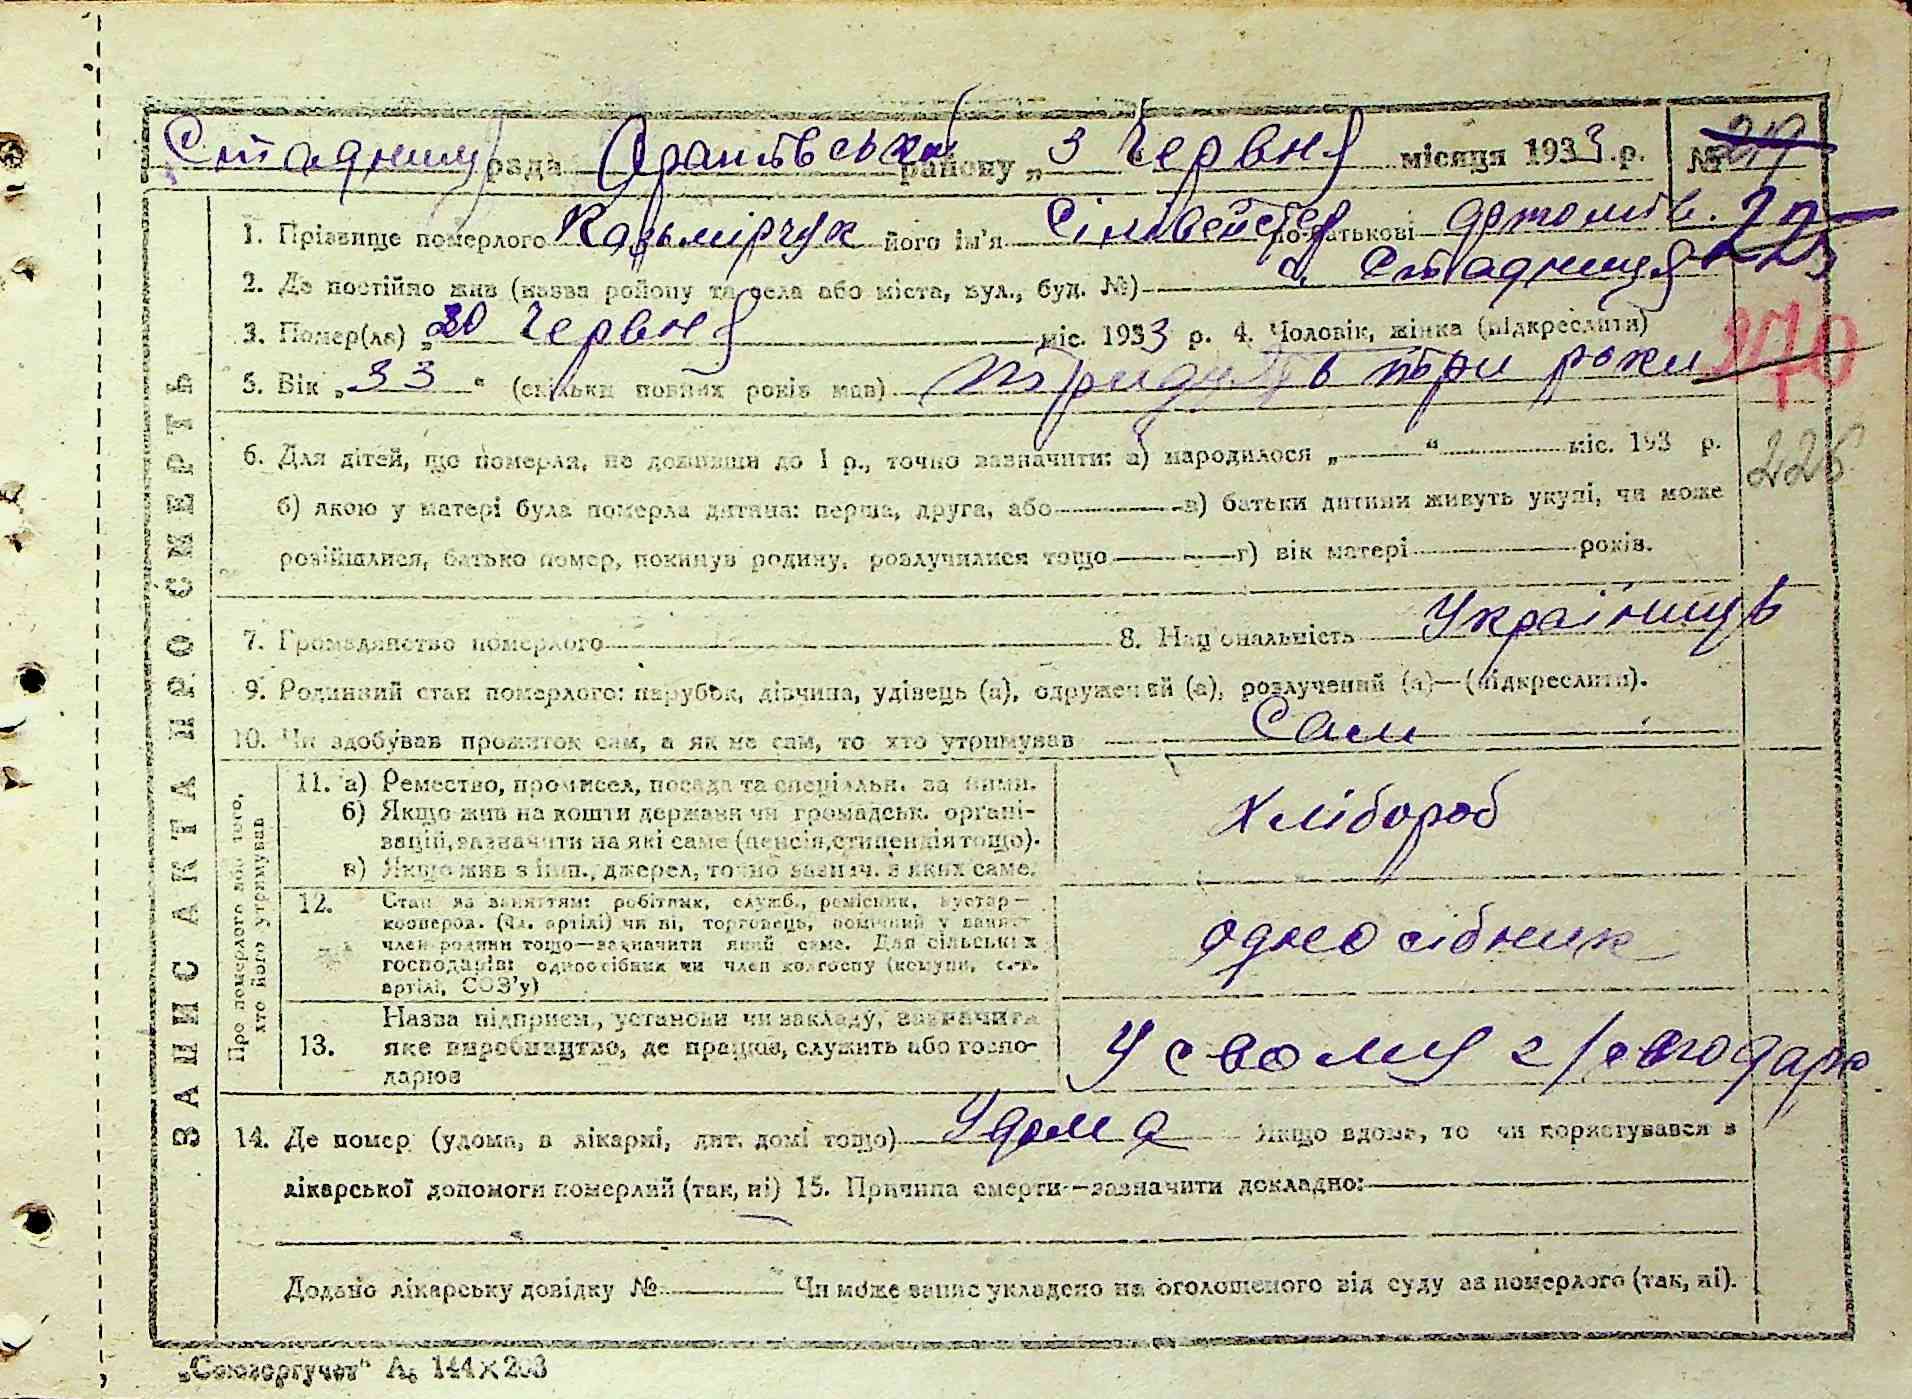 Стадниц рада Оратівська району „ 3 Червня місяця 1933 р. № 219
1. Прізвище померлого Казьмірчук його ім'я Сільвейстер по-батькові
223
2. Де постійно жив (назва району та села або міста, вул., буд. №) с. Стадниця
3. Помер(ла) „ 30 Червня міс. 1933 р. 4. Чоловік, жінка (підкреслити)
270
5. Вік „ 33 “ (скільки повних років мав) тридцять три роки
6. Для дітей, що померли, не доживши до 1 р., точно зазначити: а) народилося „ “ міс. 193 р.
226
б) якою у матері була померла дитина: перша, друга, або в) батьки дитини живуть укупі, чи може
розійшлися, батько помер, покинув родину, розлучилися тощо г) вік матері років.
7. Громадянство померлого 8. Національність Українець
9. Родинний стан померлого: парубок, дівчина, удівець (а), одружений (а), розлучений (а)—(підкреслити).
10. Чи здобував прожиток сам, а як не сам, то хто утримував Сам
ЗАПИС АКТА ПРО СМЕРТЬ
Про померлого або того,
хто його утримував
11. а) Ремество, промисел, посада та спеціальн. за ними.
б) Якщо жив на кошти держави чи громадськ. органі-
зацій, зазначити на які саме (пенсія, стипендія тощо).
в) Якщо жив з інш., джерел, точно зазнач. з яких саме.
Хлібороб
12. Стан за заняттям: робітник, служб., ремісник, кустар—
кооперов. (чл. артілі) чи ні, торговець, помічний у занятт
член родини тощо—зазначити який саме. Для сільських
господарів: одноосібник чи член колгоспу (комуни, с.-г.
артілі, СОЗ'у)
одноосібник
13. Назва підприєм., установи чи закладу, зазначити
яке виробництво, де працюв, служить або госпо-
дарюв
У свому г/осподарс
14. Де помер (удома, в лікарні, дит. домі тощо) Удома Якщо вдома, то чи користувався з
лікарської допомоги померлий (так, ні) 15. Причина смерти—зазначити докладно:
Додано лікарську довідку № Чи може запис укладено на оголошеного від суду за померлого (так, ні).
„Союзоргучет“ А₅ 144×203